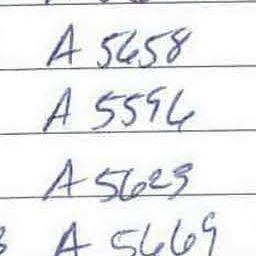 A 5658
A 5596
A 5623
A 5669